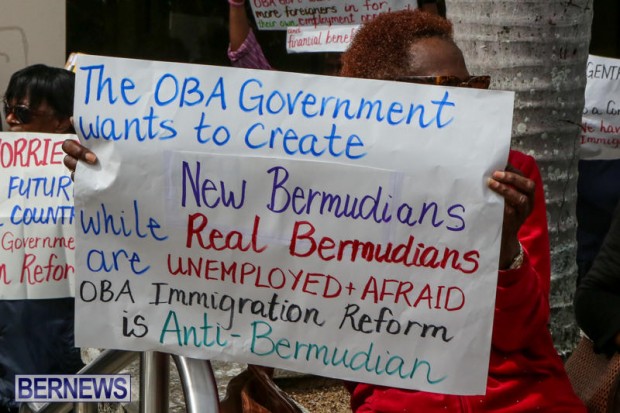 more foreigners in for,
their own employment
and
financial
The OBA Government
wants to Create
New Bermudians
while Real Bermudians
are UNEMPLOYED + AFRAID
OBA Immigration Reform
is Anti-Bermudian
ORRIE
FUTUR
COUNT
Governme
n Refor
a Co
We hav
Immigr
BERNEWS